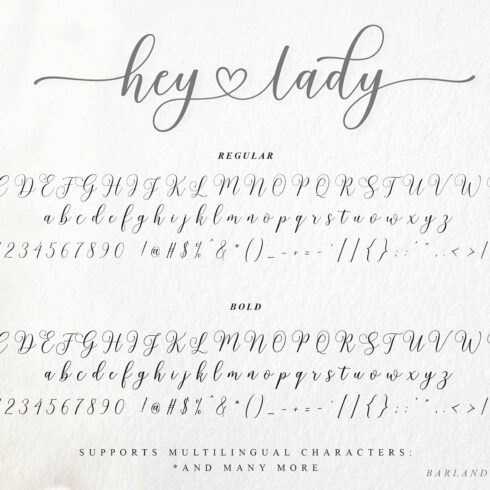 hey lady
REGULAR
C D E F G H I J K L M N O P Q R S T U V W
a b c d e f g h i j k l m n o p q r s t u v w x y z
1 2 3 4 5 6 7 8 9 0 ! @ # $ % ^ & * ( ) _ - + = - ` / | { } ; : ' " , . < > /
BOLD
C D E F G H I J K L M N O P Q R S T U V W
a b c d e f g h i j k l m n o p q r s t u v w x y z
1 2 3 4 5 6 7 8 9 0 ! @ # $ % ^ & * ( ) _ - + = - ` / | { } ; : ' " , . < > /
SUPPORTS MULTILINGUAL CHARACTERS:
*AND MANY MORE
BARLAND